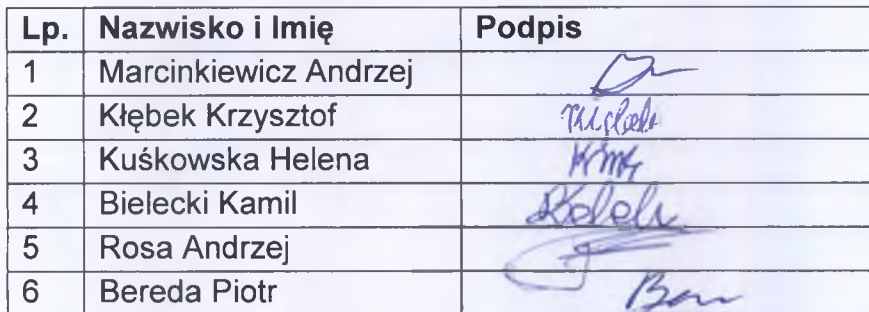 Lp. Nazwisko i Imię Podpis
1 Marcinkiewicz Andrzej
2 Kłębek Krzysztof
3 Kuśkowska Helena
4 Bielecki Kamil
5 Rosa Andrzej
6 Bereda Piotr